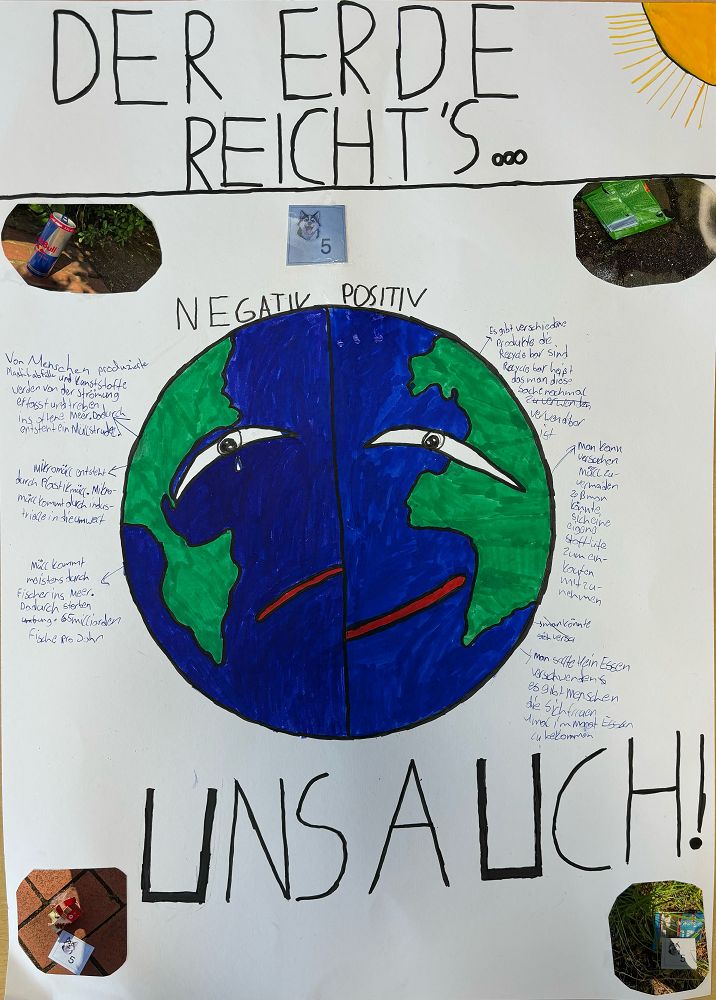 DER ERDE
REICHT'S...
Red Bull
5
NEGATIV POSITIV
Von Menschen produzierte
und Kunststoffe
werden von der Strömung
erfasst und treiben
ins offene Meer. Dadurch
entsteht ein Müllstrudel.
mikromüll entsteht
durch Plastikmüll. Mikro-
müll kommt durch indus-
trielle in die umwelt
Müll kommt
meistens durch
Fischer ins Meer.
Dadurch sterben
65 milliarden
Fische pro Jahr
Es gibt verschiedene
Produkte die
Recycle bar sind
Recycle bar heißt
das man diese
sache nochmal
zu verwenden
verwendbar
ist
man kann
versuchen
müll zu-
vermeiden
man
könnte
sich eine
eigene
tüte
zum ein-
kaufen
mit zu-
nehmen
man könnte
man sollte kein Essen
verschwenden
es gibt Menschen
die sich freuen
1 mal im Monat Essen
zu bekommen
UNS AUCH!
5
5